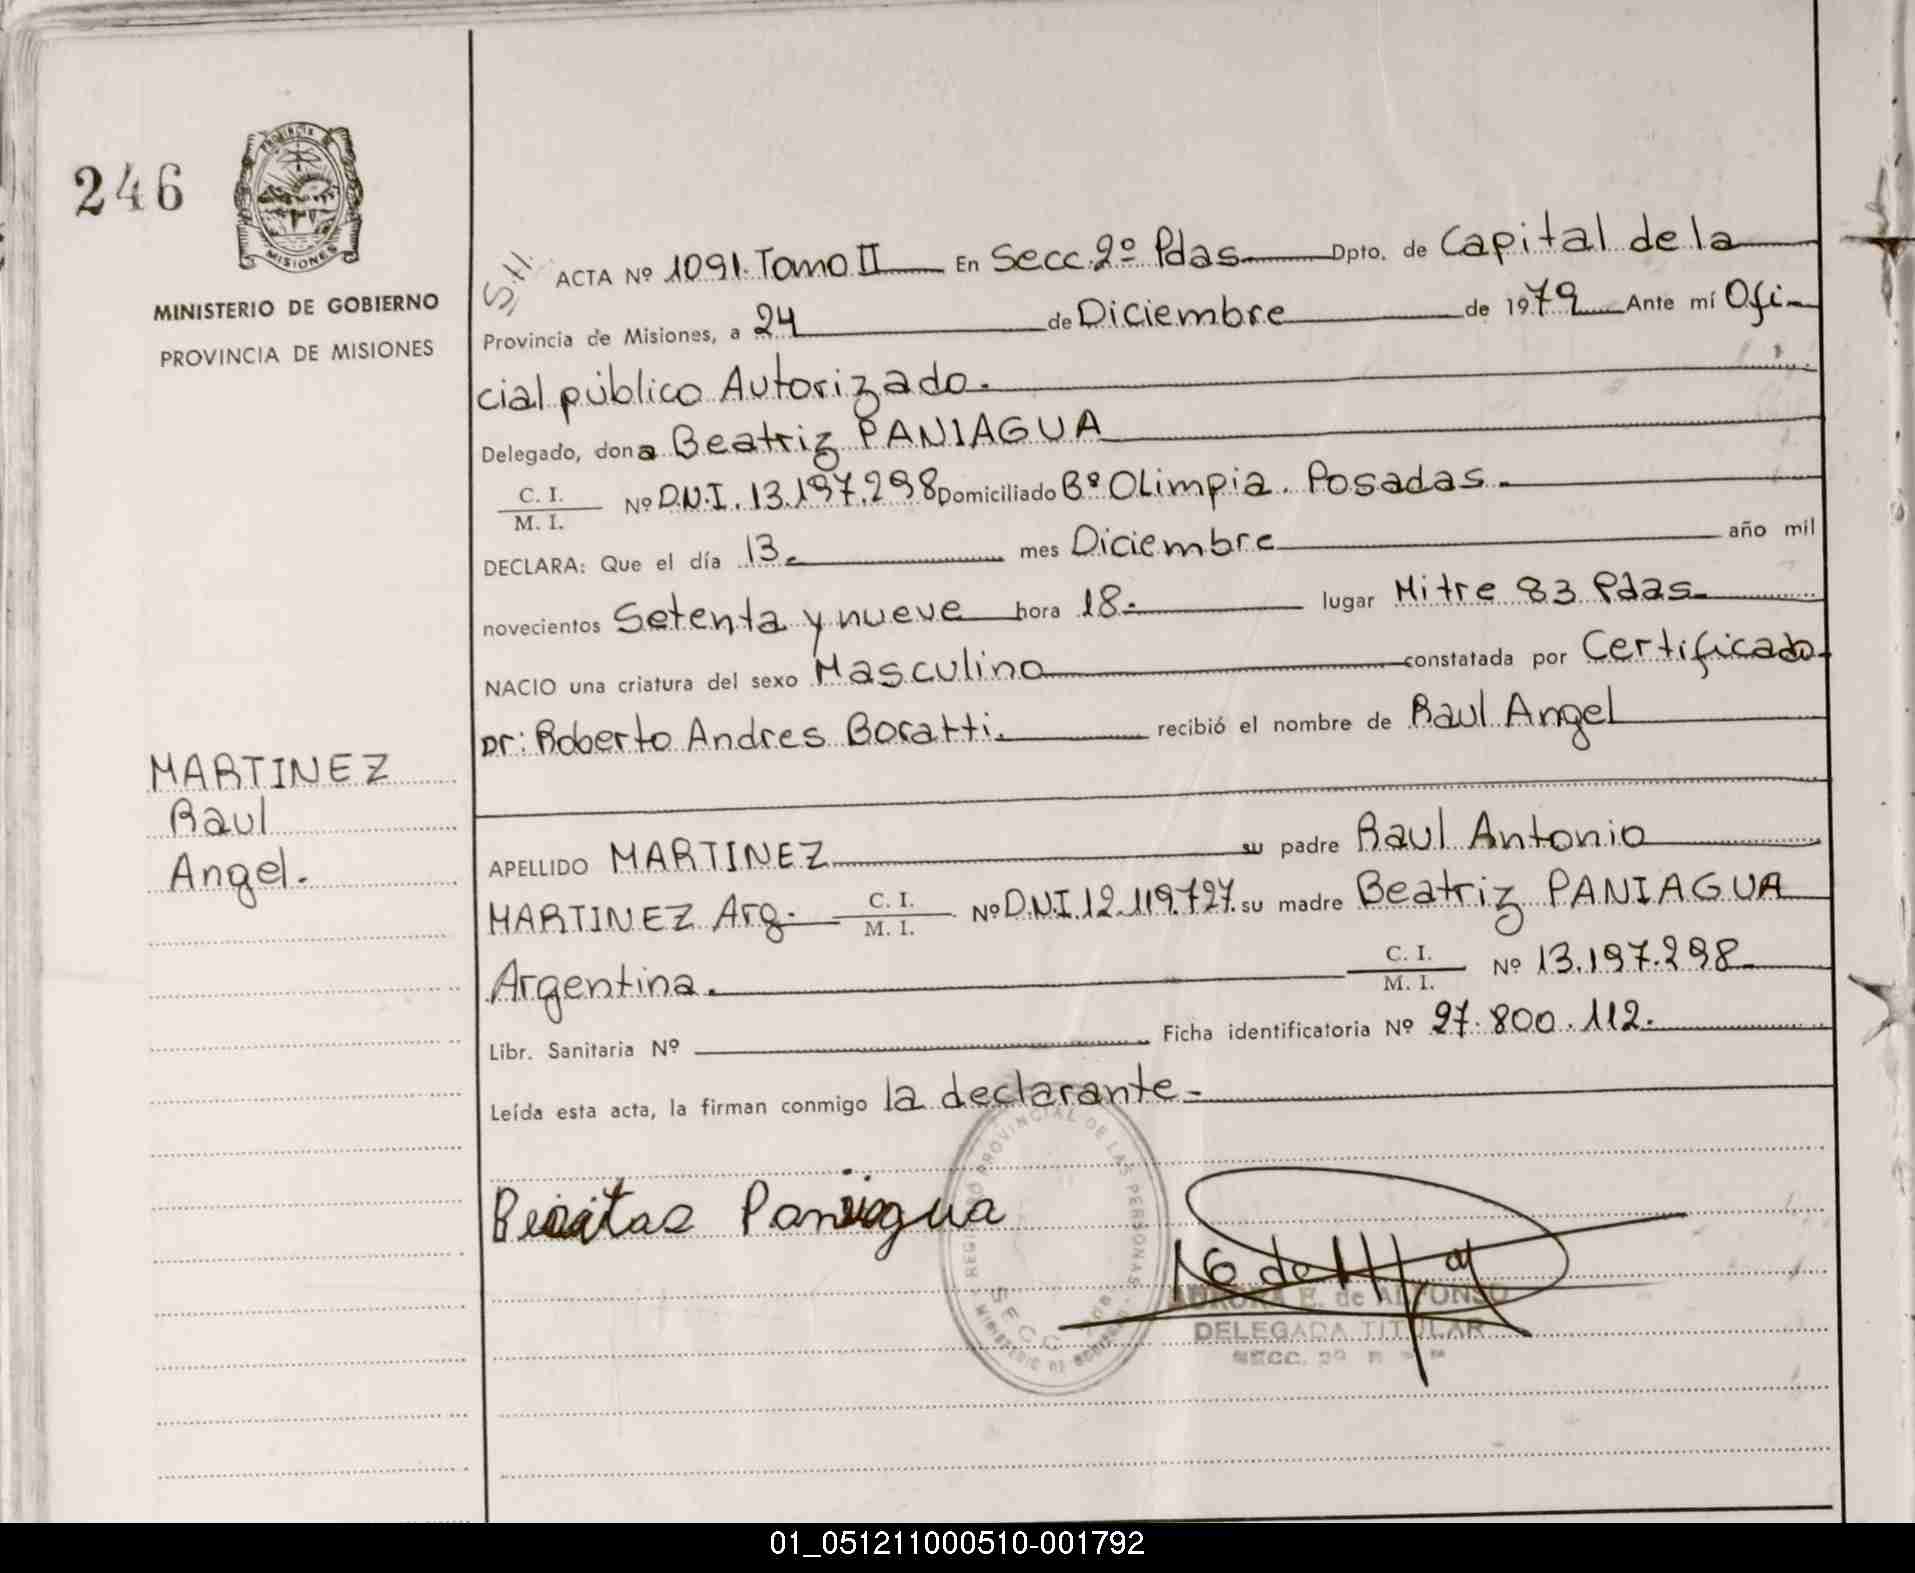 246
PROVINCIA
MISIONES
MINISTERIO DE GOBIERNO
PROVINCIA DE MISIONES
MARTINEZ
Raul
Angel.
ACTA Nº 1091. Tomo II En Secc. 2º Pdas Dpto. de Capital de la
Provincia de Misiones, a 24 de Diciembre de 1979 Ante mí Ofi-
cial público Autorizado.
Delegado, dona Beatriz PANIAGUA
C. I.
M. I. Nº D.N.I. 13.197.298 Domiciliado Bº Olimpia. Posadas.
DECLARA: Que el día 13. mes Diciembre año mil
novecientos Setenta y nueve hora 18.- lugar Mitre 83 Pdas.
NACIO una criatura del sexo Masculino constatada por Certificado
Dr: Roberto Andres Boratti. recibió el nombre de Raul Angel
APELLIDO MARTINEZ su padre Raul Antonio
MARTINEZ Arg. C. I. M. I. Nº D.N.I 12.119.727. su madre Beatriz PANIAGUA
Argentina. C. I. M. I. Nº 13.197.298
Libr. Sanitaria Nº Ficha identificatoria Nº 27.800.112.
Leída esta acta, la firman conmigo la declarante.-
Paniagua
REGISTRO PROVINCIAL DE LAS PERSONAS
SECC.
MINISTERIO DE GOBIERNO
AURORA E. de ALFONSO
DELEGADA TITULAR
SECC. 2º
01_051211000510-001792